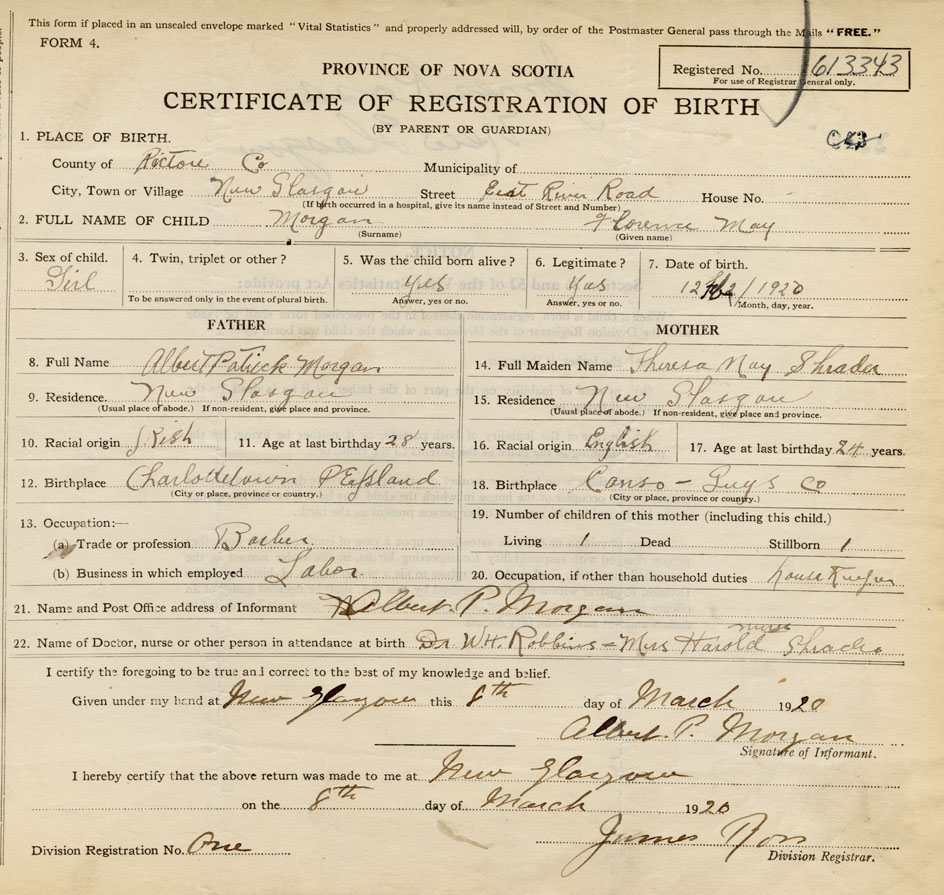 This form if placed in an unsealed envelope marked "Vital Statistics" and properly addressed will, by order of the Postmaster General pass through the Mails "FREE."
FORM 4.
Registered No. 613343
For use of Registrar General only.
PROVINCE OF NOVA SCOTIA
CERTIFICATE OF REGISTRATION OF BIRTH
(BY PARENT OR GUARDIAN)
1. PLACE OF BIRTH.
County of Pictou Co Municipality of
City, Town or Village New Glasgow Street East River Road House No. -
(If birth occurred in a hospital, give its name instead of Street and Number)
2. FULL NAME OF CHILD Morgan Florence May
(Surname) (Given name)
3. Sex of child. 4. Twin, triplet or other? 5. Was the child born alive? 6. Legitimate? 7. Date of birth.
Girl Yes Yes 1920
To be answered only in the event of plural birth. Answer, yes or no. Answer, yes or no. Month, day, year.
FATHER MOTHER
8. Full Name Albert Patrick Morgan 14. Full Maiden Name Theresa May Shrader
9. Residence. New Glasgow 15. Residence New Glasgow
(Usual place of abode.) If non-resident, give place and province. (Usual place of abode.) If non-resident, give place and province.
10. Racial origin Irish 11. Age at last birthday 28 years. 16. Racial origin English 17. Age at last birthday 24 years.
12. Birthplace Charlottetown P E Island 18. Birthplace Canso - Guys Co
(City or place, province or country.) (City or place, province or country.)
13. Occupation:— 19. Number of children of this mother (including this child.)
(a) Trade or profession Barber. Living 1 Dead Stillborn 1
(b) Business in which employed Labor. 20. Occupation, if other than household duties House Keeper
21. Name and Post Office address of Informant Albert P. Morgan
nurse
22. Name of Doctor, nurse or other person in attendance at birth Dr. W.H. Robbins - Mrs Harold Shrader
I certify the foregoing to be true and correct to the best of my knowledge and belief.
Given under my hand at New Glasgow this 8th day of March 1920
Albert P. Morgan
Signature of Informant.
I hereby certify that the above return was made to me at New Glasgow
on the 8th day of March 1920
James Ross
Division Registration No. One Division Registrar.